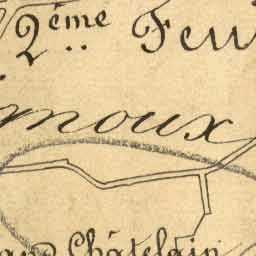 2ème Feui
gnoux
and Châtelain